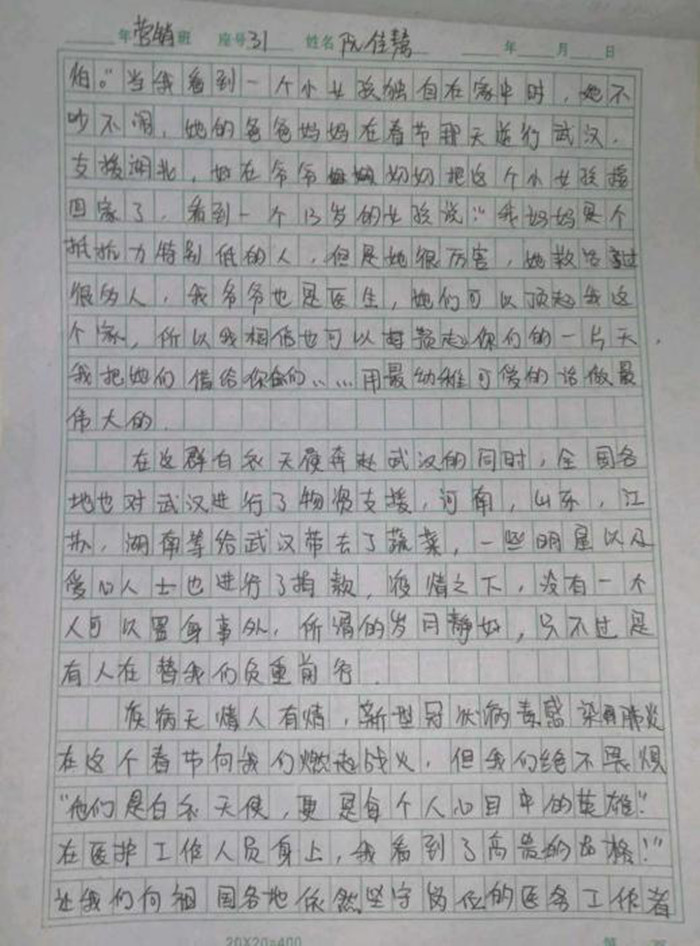 年营销班 座号31 姓名阮佳慧 年 月 日
怕。”当我看到一个小女孩独自在家中时，她不
吵不闹，她的爸爸妈妈在春节那天逆行武汉，
支援湖北，好在爷爷奶奶把这个小女孩接
回家了，看到一个13岁的女孩说：“我妈妈是个
抵抗力特别低的人，但是她很厉害，她救治过
很多人，我爷爷也是医生，她们可以顶起我这
个家，所以我相信也可以撑起你们的一片天，
我把她们借给你们……用最幼稚可爱的话做最
伟大的.
在这群白衣天使奔赴武汉的同时，全国各
地也对武汉进行了物资支援，河南，山东，江
苏，湖南等给武汉带去了蔬菜，一些明星以及
爱心人士也进行了捐款，疫情之下，没有一个
人可以置身事外，所谓的岁月静好，只不过是
有人在替我们负重前行.
疾病无情人有情，新型冠状病毒感染肺炎
在这个春节向我们燃起战火，但我们绝不畏惧
“他们是白衣天使，更是每个人心目中的英雄”
在医护工作人员身上，我看到了高贵的品格！”
让我们向祖国各地依然坚守岗位的医务工作者
20X20=400
第